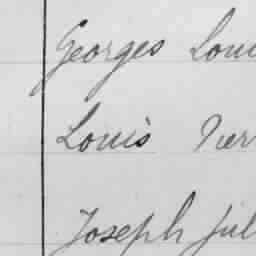 Georges Loui
Louis
Joseph Jul